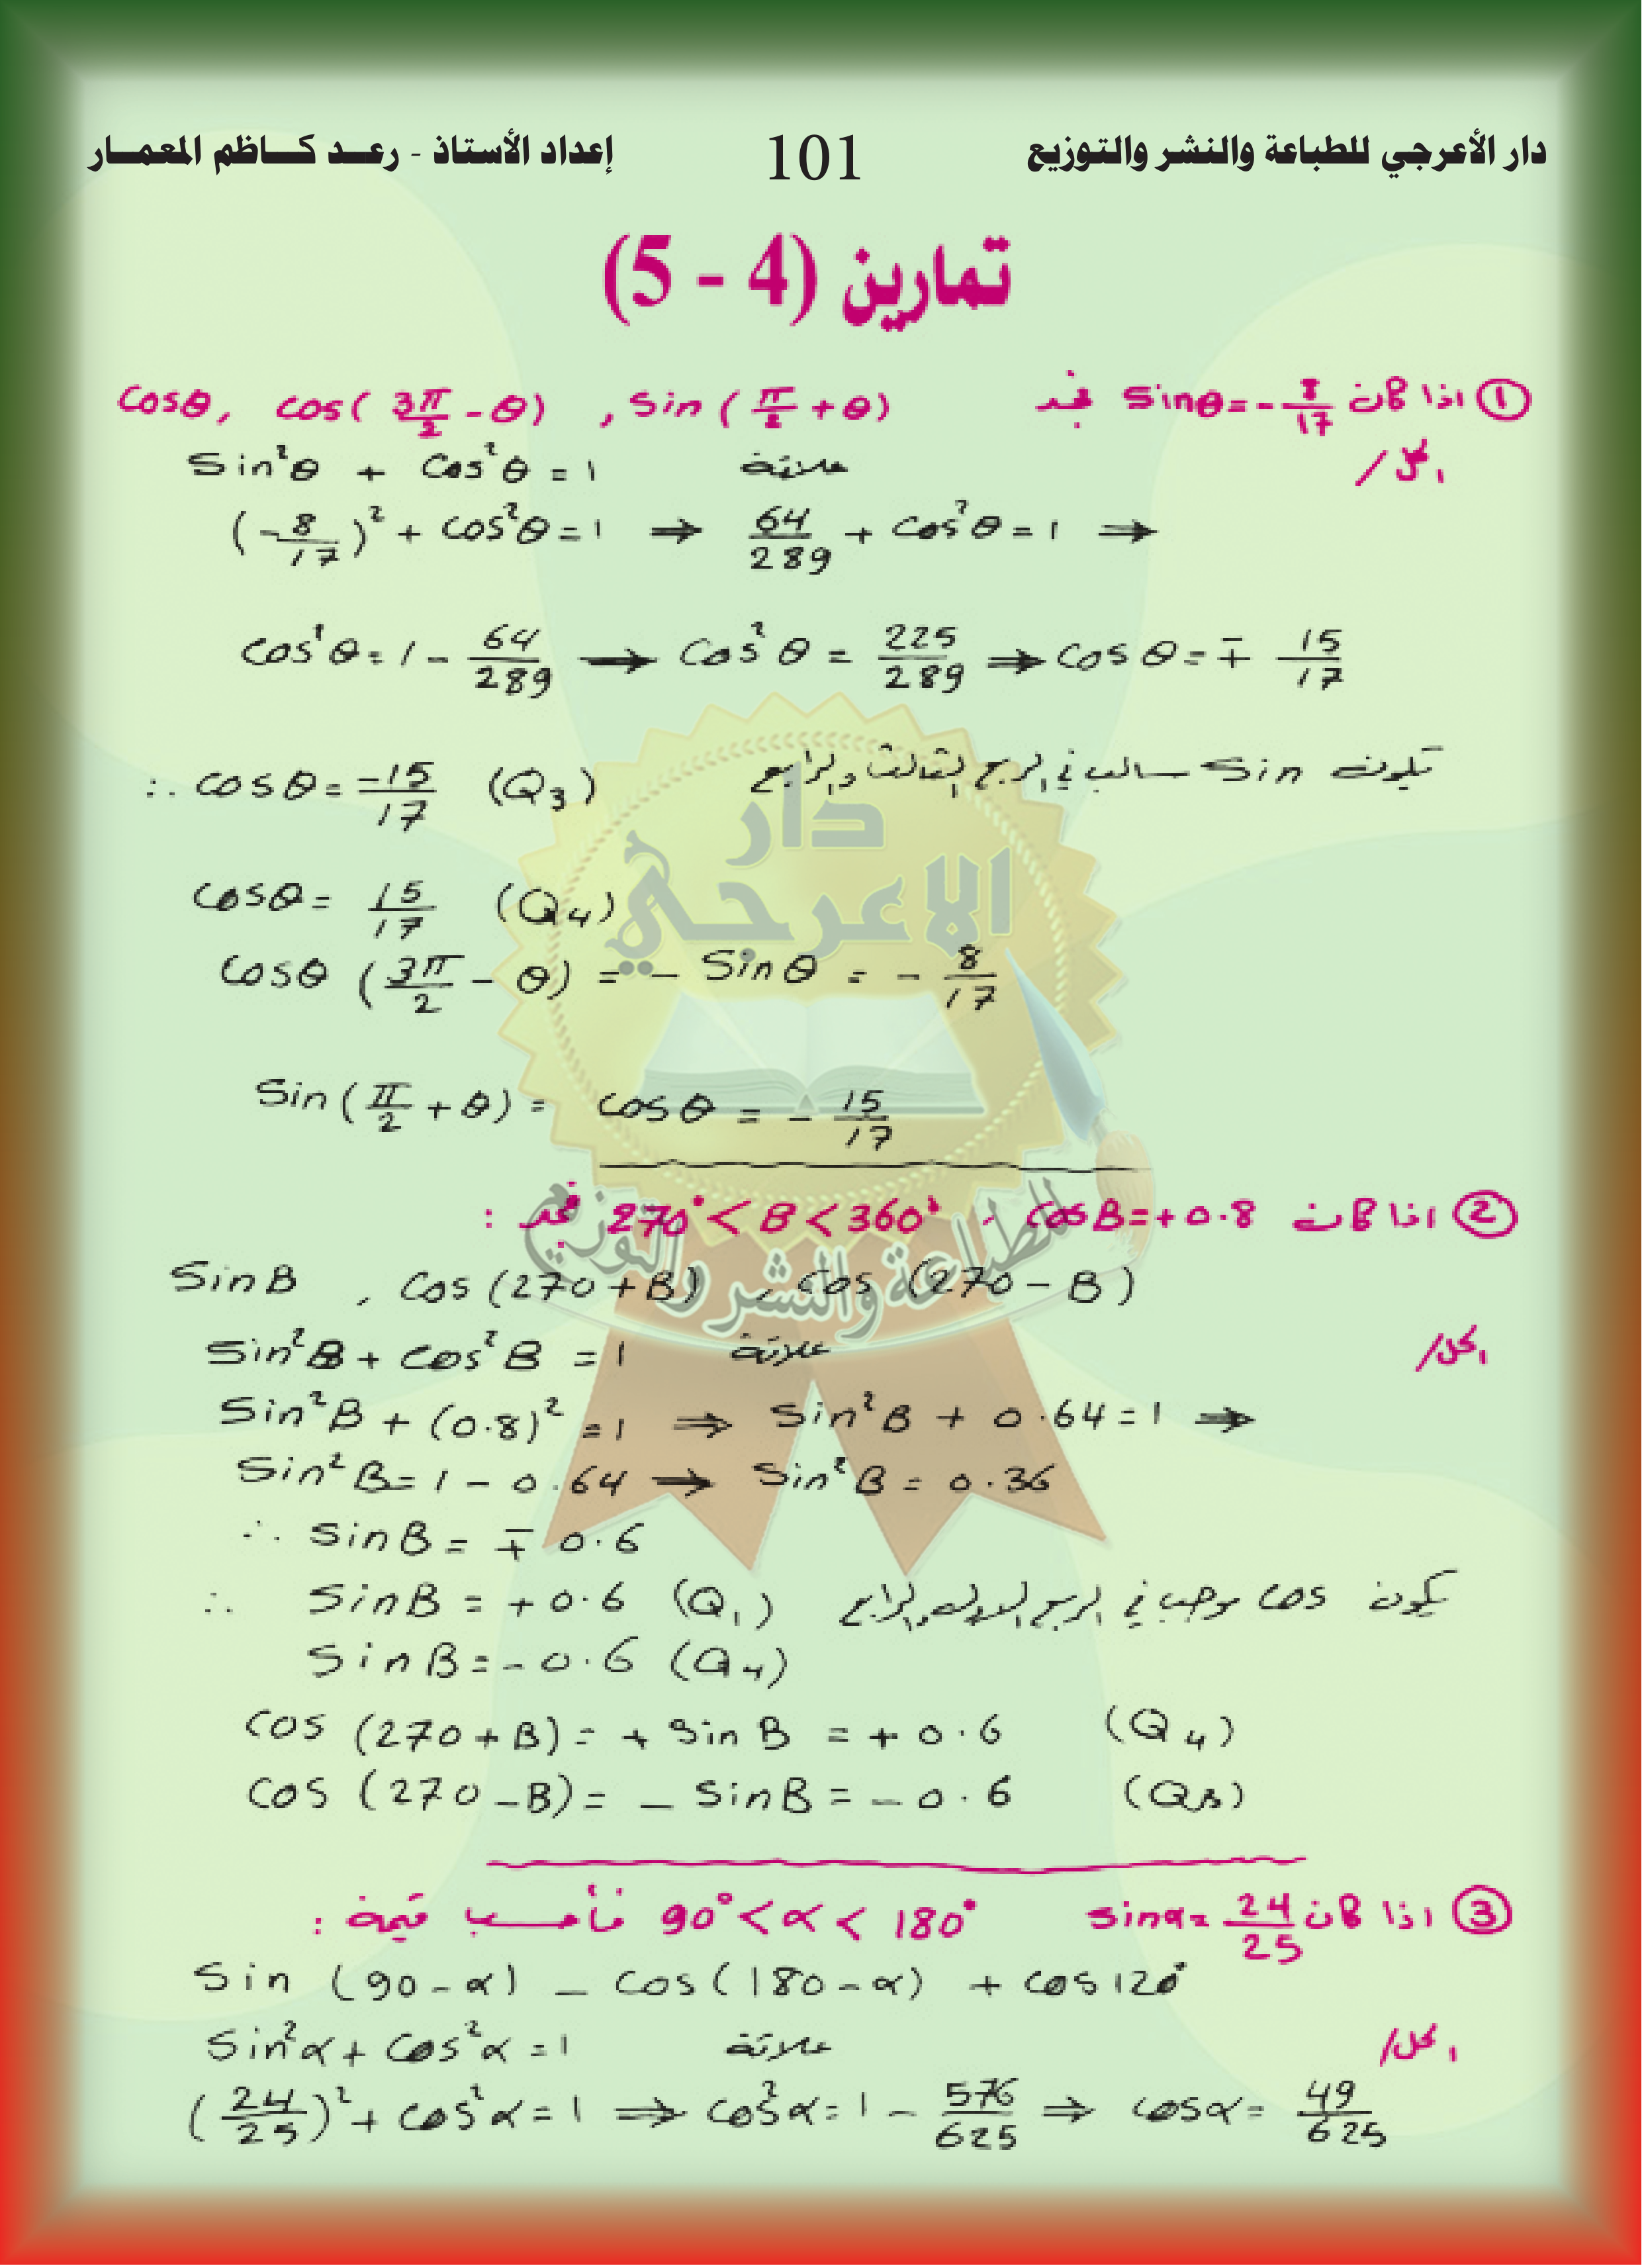 دار الأعرجي للطباعة والنشر والتوزيع 101 إعداد الأستاذ - رعــد كــاظم المعمــار
تمارين (4 - 5)
① اذا كان sinθ = -8/17 جد cosθ, cos(3π/2 - θ) , sin(π/2 + θ)
الحل/
علاقة sin²θ + cos²θ = 1
(-8/17)² + cos²θ = 1 ⇒ 64/289 + cos²θ = 1 ⇒
cos²θ = 1 - 64/289 → cos²θ = 225/289 ⇒ cosθ = ∓ 15/17
تكون sin سالب في الربع الثالث والرابع
∴ cosθ = -15/17 (Q3)
cosθ = 15/17 (Q4)
cosθ (3π/2 - θ) = - sinθ = - 8/17
sin(π/2 + θ) = cosθ = - 15/17
② اذا كان cosB = +0.8 , 270° < B < 360° جد :
sinB , cos(270+B) , cos(270-B)
الحل/
علاقة sin²B + cos²B = 1
sin²B + (0.8)² = 1 ⇒ sin²B + 0.64 = 1 ⇒
sin²B = 1 - 0.64 → sin²B = 0.36
∴ sinB = ∓ 0.6
يكون cos موجب في الربع الاول والرابع
∴ sinB = +0.6 (Q1)
sinB = -0.6 (Q4)
cos (270+B) = + sinB = + 0.6 (Q4)
cos (270-B) = - sinB = - 0.6 (Q3)
③ اذا كان sinα = 24/25 90° < α < 180° فأحسب قيمة :
sin (90-α) - cos(180-α) + cos120°
الحل/
علاقة sin²α + cos²α = 1
(24/25)² + cos²α = 1 ⇒ cos²α = 1 - 576/625 ⇒ cosα = 49/625
دار
الاعرجي
للطباعة والنشر والتوزيع